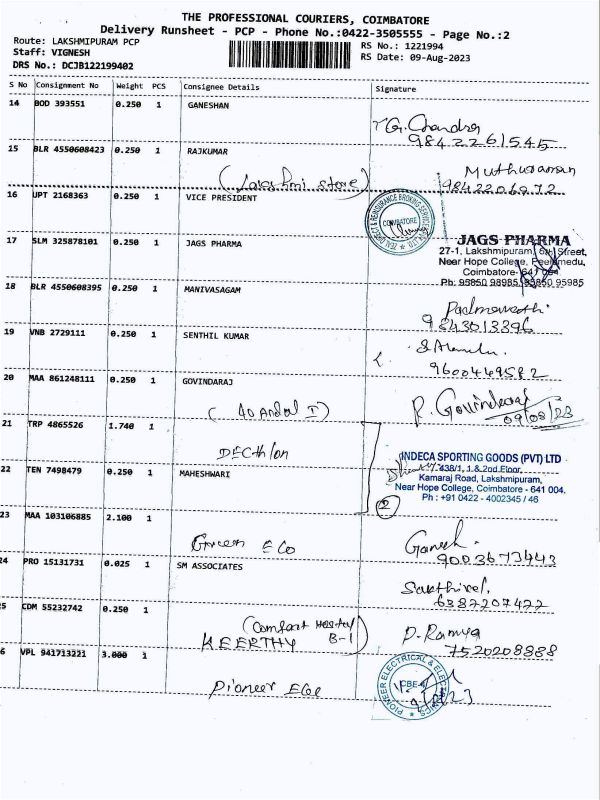 THE PROFESSIONAL COURIERS, COIMBATORE
Delivery Runsheet - PCP - Phone No.:0422-3505555 - Page No.:2
Route: LAKSHMIPURAM PCP
Staff: VIGNESH
DRS No.: DCJB122199402
RS No.: 1221994
RS Date: 09-Aug-2023
S No Consignment No Weight PCS Consignee Details Signature
14 BOD 393551 0.250 1 GANESHAN
G. Chandra
9842261545
15 BLR 4550608423 0.250 1 RAJKUMAR
(Lakshmi store)
9842206972
16 JPT 2168363 0.250 1 VICE PRESIDENT
COIMBATORE
17 SLM 325878101 0.250 1 JAGS PHARMA
JAGS PHARMA
27-1, Lakshmipuram, Street,
Near Hope College, Peelamedu,
Coimbatore- 641 004
Ph: 95850 98985, 95850 95985
18 BLR 4550608395 0.250 1 MANIVASAGAM
Padmavathi
9843013396
19 VNB 2729111 0.250 1 SENTHIL KUMAR
9600449582
20 MAA 861248111 0.250 1 GOVINDARAJ
R. Govindaraj
09/08/23
21 TRP 4865526 1.740 1
DECthlon
INDECA SPORTING GOODS (PVT) LTD
438/1, 1 & 2nd Floor,
Kamaraj Road, Lakshmipuram,
Near Hope College, Coimbatore - 641 004.
Ph : +91 0422 - 4002345 / 46
22 TEN 7498479 0.250 1 MAHESHWARI
2
23 MAA 103106885 2.100 1
Green Eco
Ganesh
9003673443
24 PRO 15131731 0.025 1 SM ASSOCIATES
Sakthivel.
6382207422
5 CDM 55232742 0.250 1
(Comfort Hostel B-1)
KEERTHY
P. Ramya
7520208888
6 VPL 941713221 3.000 1
Pioneer Elec
PIONEER ELECTRICAL & ELECTRONICS
CBE-4